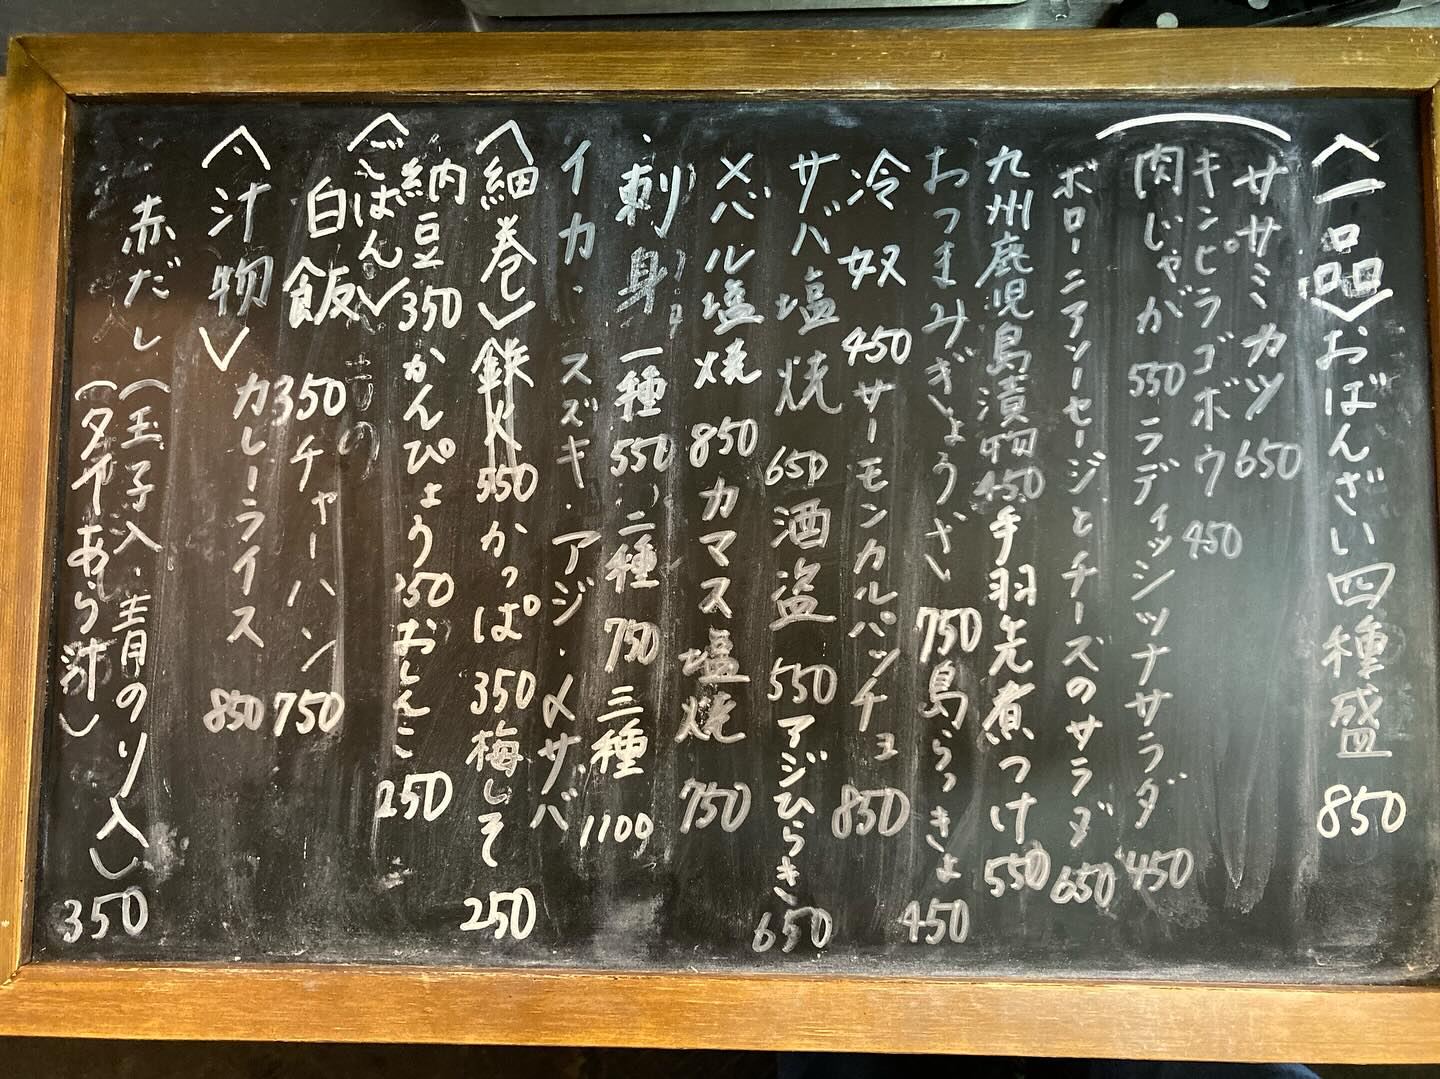 〈一品〉おばんざい四種盛 850
ササミカツ 650
キンピラゴボウ 450
肉じゃが 550 ラディッシュツナサラダ 450
ボローニアソーセージとチーズのサラダ 650
九州鹿児島漬物 450 手羽先煮つけ 550
おつまみぎょうざ 750 島らっきょ 450
冷奴 450 サーモンカルパッチョ 850
サバ塩焼 650 酒盗 550 アジひらき 650
メバル塩焼 850 カマス塩焼 750
刺身 一種 550 二種 750 三種 1100
イカ・スズキ・アジ・〆サバ
〈細巻〉鉄火 550 かっぱ 350 梅しそ 250
納豆 350 かんぴょう 350 おしんこ 250
〈ごはん〉
白飯 350 チャーハン 750
カレーライス 850
〈汁物〉
赤だし (玉子入・青のり入)
(タヤあら汁) 350